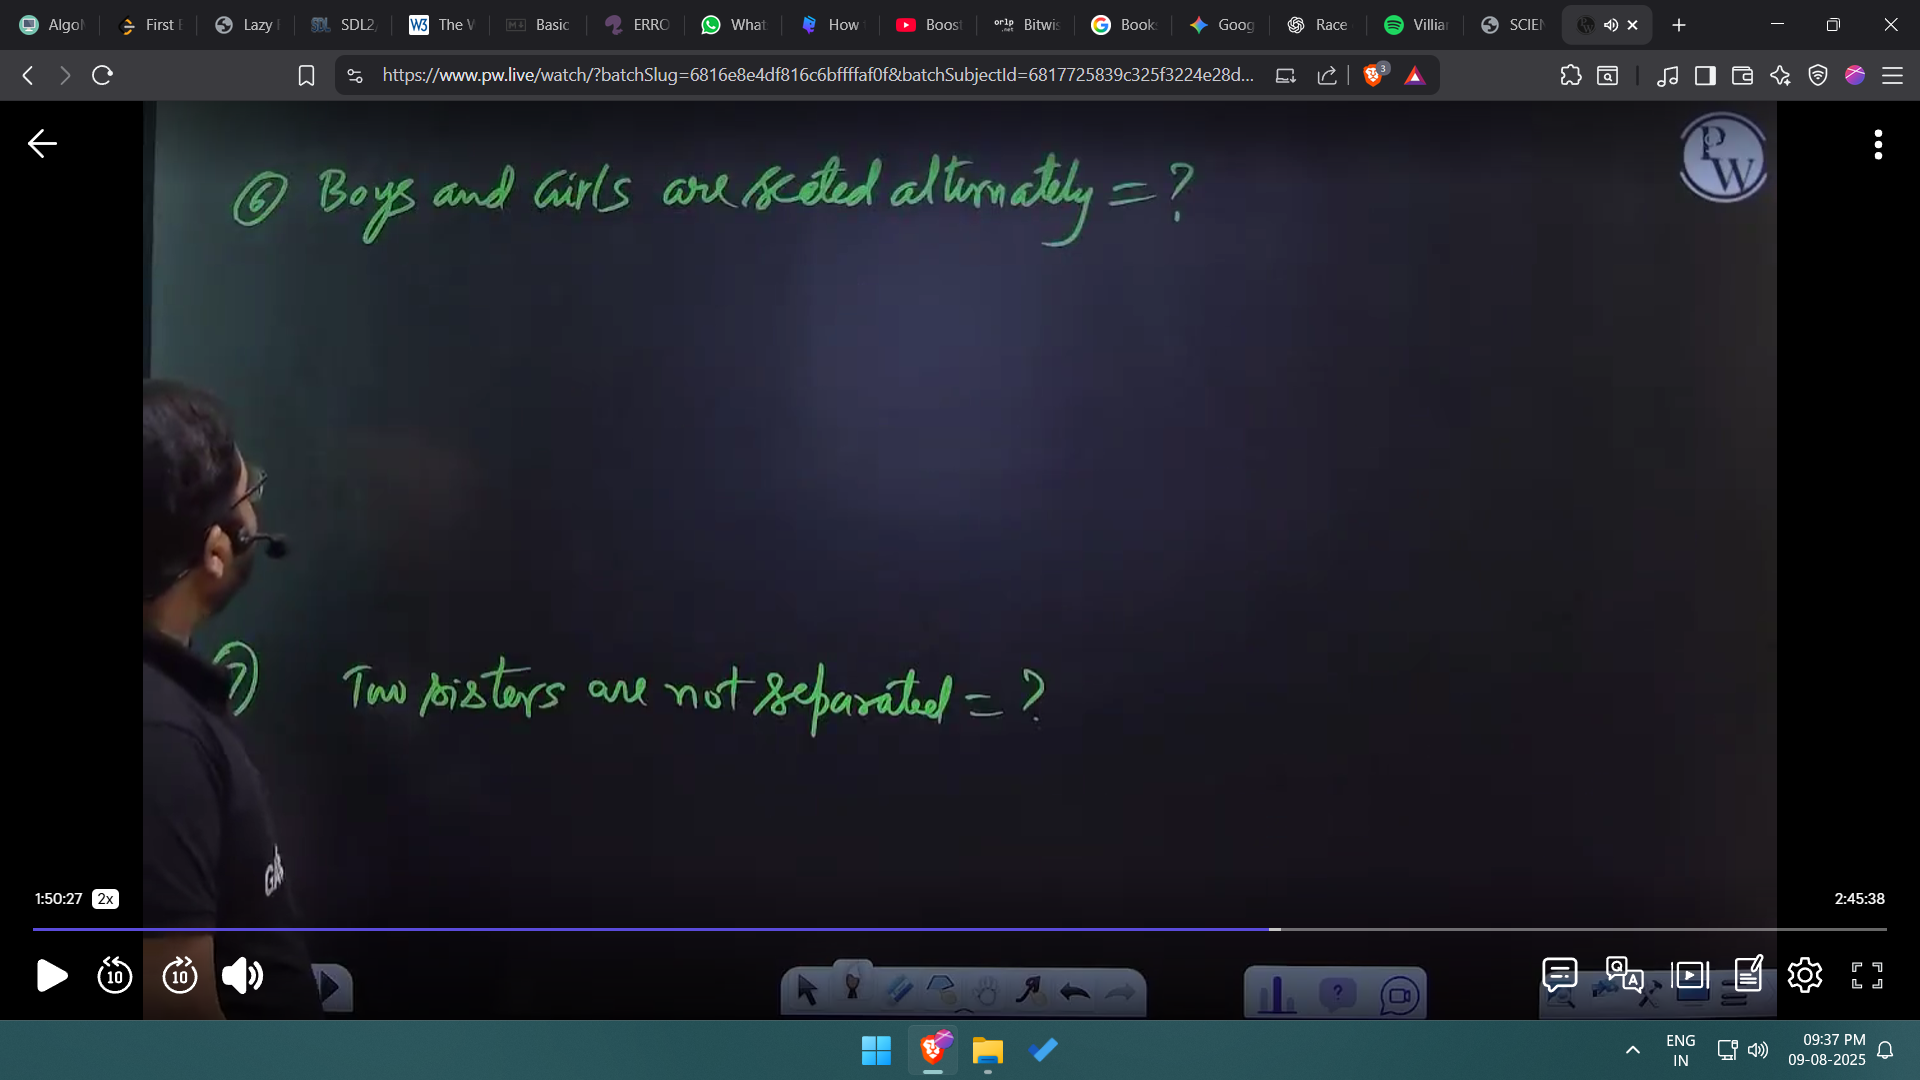 Algo First E Lazy SDL2, The W Basic ERRO What How Boost Bitwis Book Goog Race Villiar SCIEN
https://www.pw.live/watch/?batchSlug=6816e8e4df816c6bffffaf0f&batchSubjectId=6817725839c325f3224e28d... 3
PW
⑥ Boys and Girls are seated alternately = ?
⑦ Two sisters are not separated = ?
GA
1:50:27 2x 2:45:38
10 10
ENG 09:37 PM
IN 09-08-2025